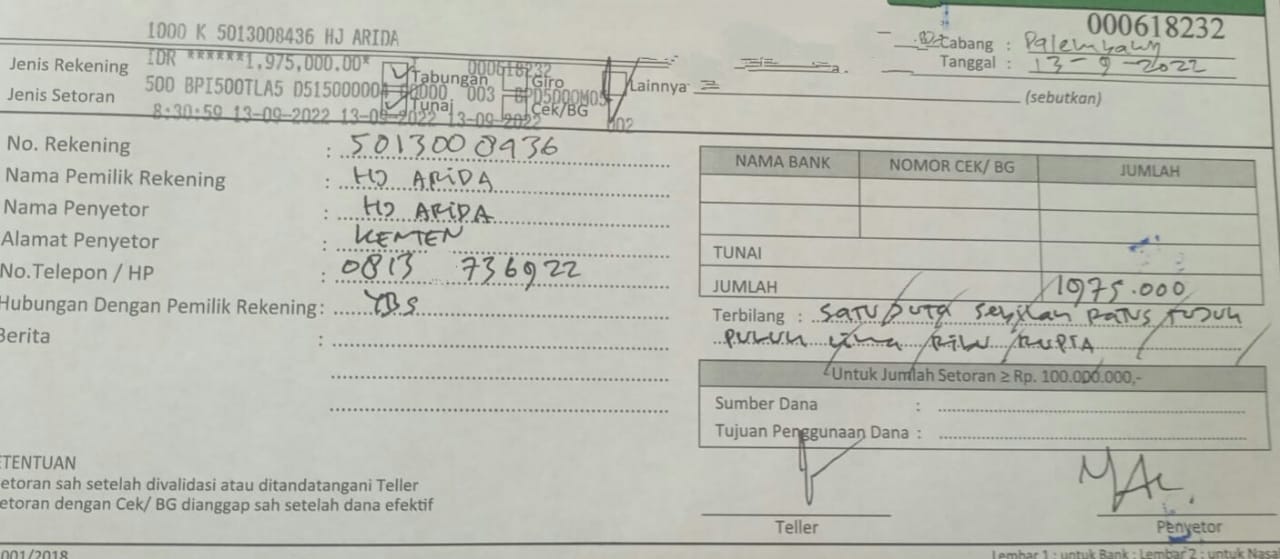 000618232
1000 K 5013008436 HJ ARIDA
Cabang : Palembang
IDR ******1,975,000.00* 000618232
Tanggal : 13-9-2022
Jenis Rekening Tabungan Giro Lainnya
500 BPI500TLA5 003
Jenis Setoran Tunai Cek/BG (sebutkan)
8:30:59 13-09-2022 13-09-2022 13-09-2022
No. Rekening : 5013008436
Nama Pemilik Rekening : HJ ARIDA
Nama Penyetor : HJ ARIDA
Alamat Penyetor : KENTEN
No.Telepon / HP : 0813 736922
Hubungan Dengan Pemilik Rekening : YBS
Berita :
NAMA BANK NOMOR CEK/ BG JUMLAH
TUNAI
JUMLAH 1975.000
Terbilang : SATU JUTA Sembilan RATUS TUJUH
PULUH Lima RIBU RUPIA
Untuk Jumlah Setoran ≥ Rp. 100.000.000,-
Sumber Dana :
Tujuan Penggunaan Dana :
ETENTUAN
etoran sah setelah divalidasi atau ditandatangani Teller
etoran dengan Cek/ BG dianggap sah setelah dana efektif
Teller
Penyetor
001/2018
Lembar 1 : untuk Bank ; Lembar 2 : untuk Nasa